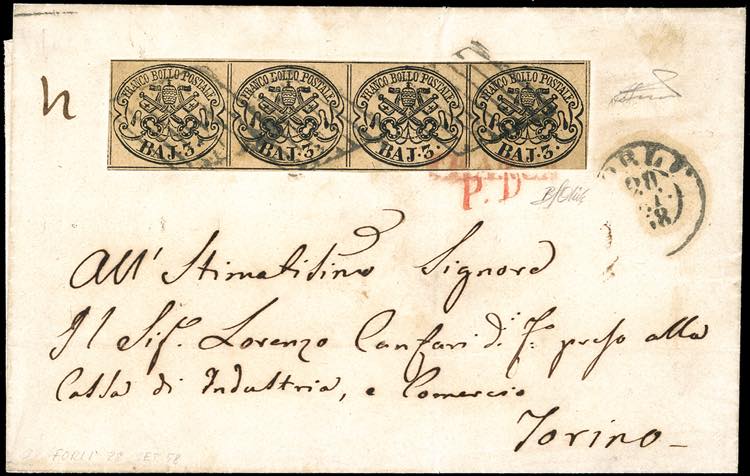 FRANCO BOLLO POSTALE BAJ. 3. FRANCO BOLLO POSTALE BAJ. 3. FRANCO BOLLO POSTALE BAJ. 3. FRANCO BOLLO POSTALE BAJ. 3.
P. D
All' Stimatisimo Signore
Il Sig. Lorenzo Canfari di F.º preso alla
Cassa di Industria, e Comercio
Torino
FORLI' 20 SET 58